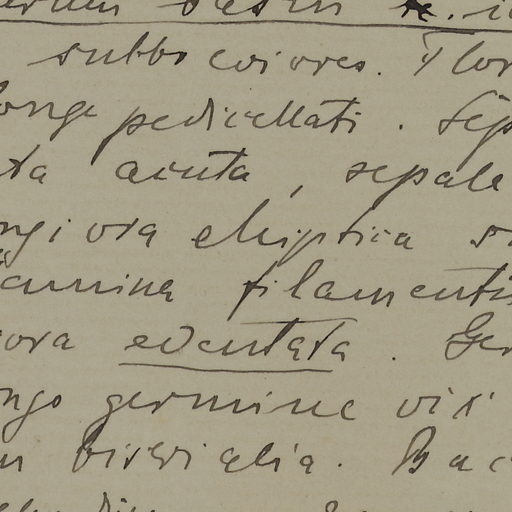 subbscoiores. Flor
longe pedicellati. Sep
ta acuta, sepale
ngiora elliptica s
tamina filamentis
iora edentata. Ger
ngo germine vix
biserialia. Bac